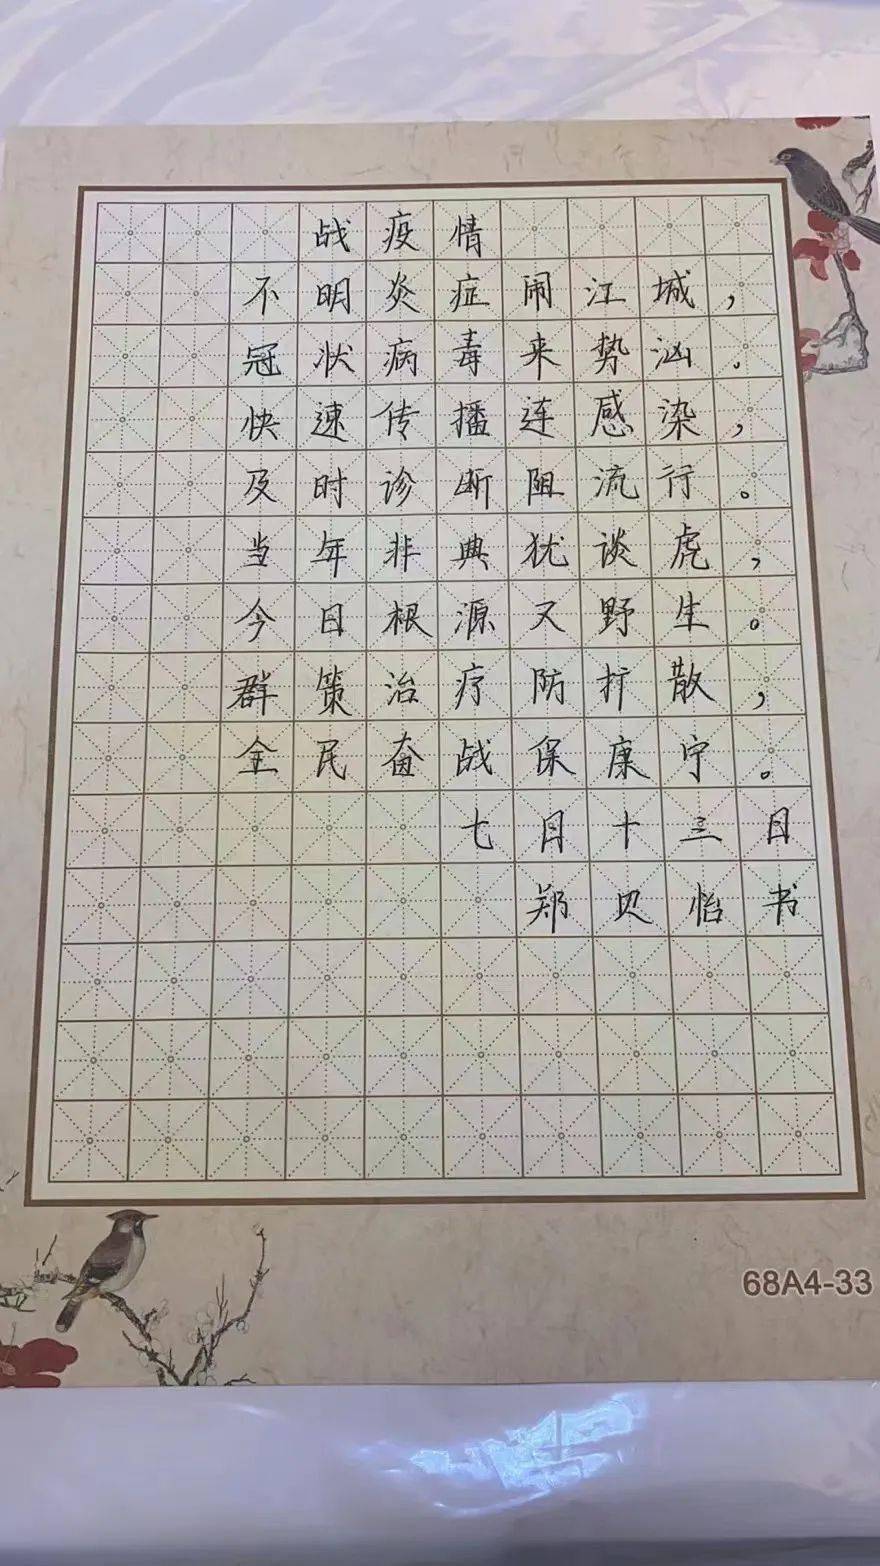 战疫情
不明炎症闹江城，
冠状病毒来势汹。
快速传播连感染，
及时诊断阻流行。
当年非典犹谈虎，
今日根源又野生。
群策治疗防扩散，
全民奋战保康宁。
七月十三日
郑贝怡书
68A4-33